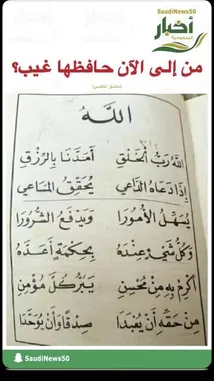 SaudiNews50
أخبار
السعودية
من إلى الآن حافظها غيب؟
اللَّهُ
اللَّهُ رَبُّ الْخَلْقِ أَمَدَّنَا بِالرِّزْقِ
إِذَا دَعَاهُ الدَّاعِي يُحَقِّقُ الْمَسَاعِي
يُسَهِّلُ الْأُمُورَا وَيَدْفَعُ الشُّرُورَا
وَكُلُّ شَيْءٍ عِنْدَهُ بِحِكْمَةٍ أَعَدَّهُ
أَكْرِمْ بِهِ مِنْ مُحْسِنِ يَبَرُّ كُلَّ مُؤْمِنِ
مِنْ حَقِّهِ أَنْ يُعْبَدَا صِدْقًا وَأَنْ يُوَحَّدَا
SaudiNews50